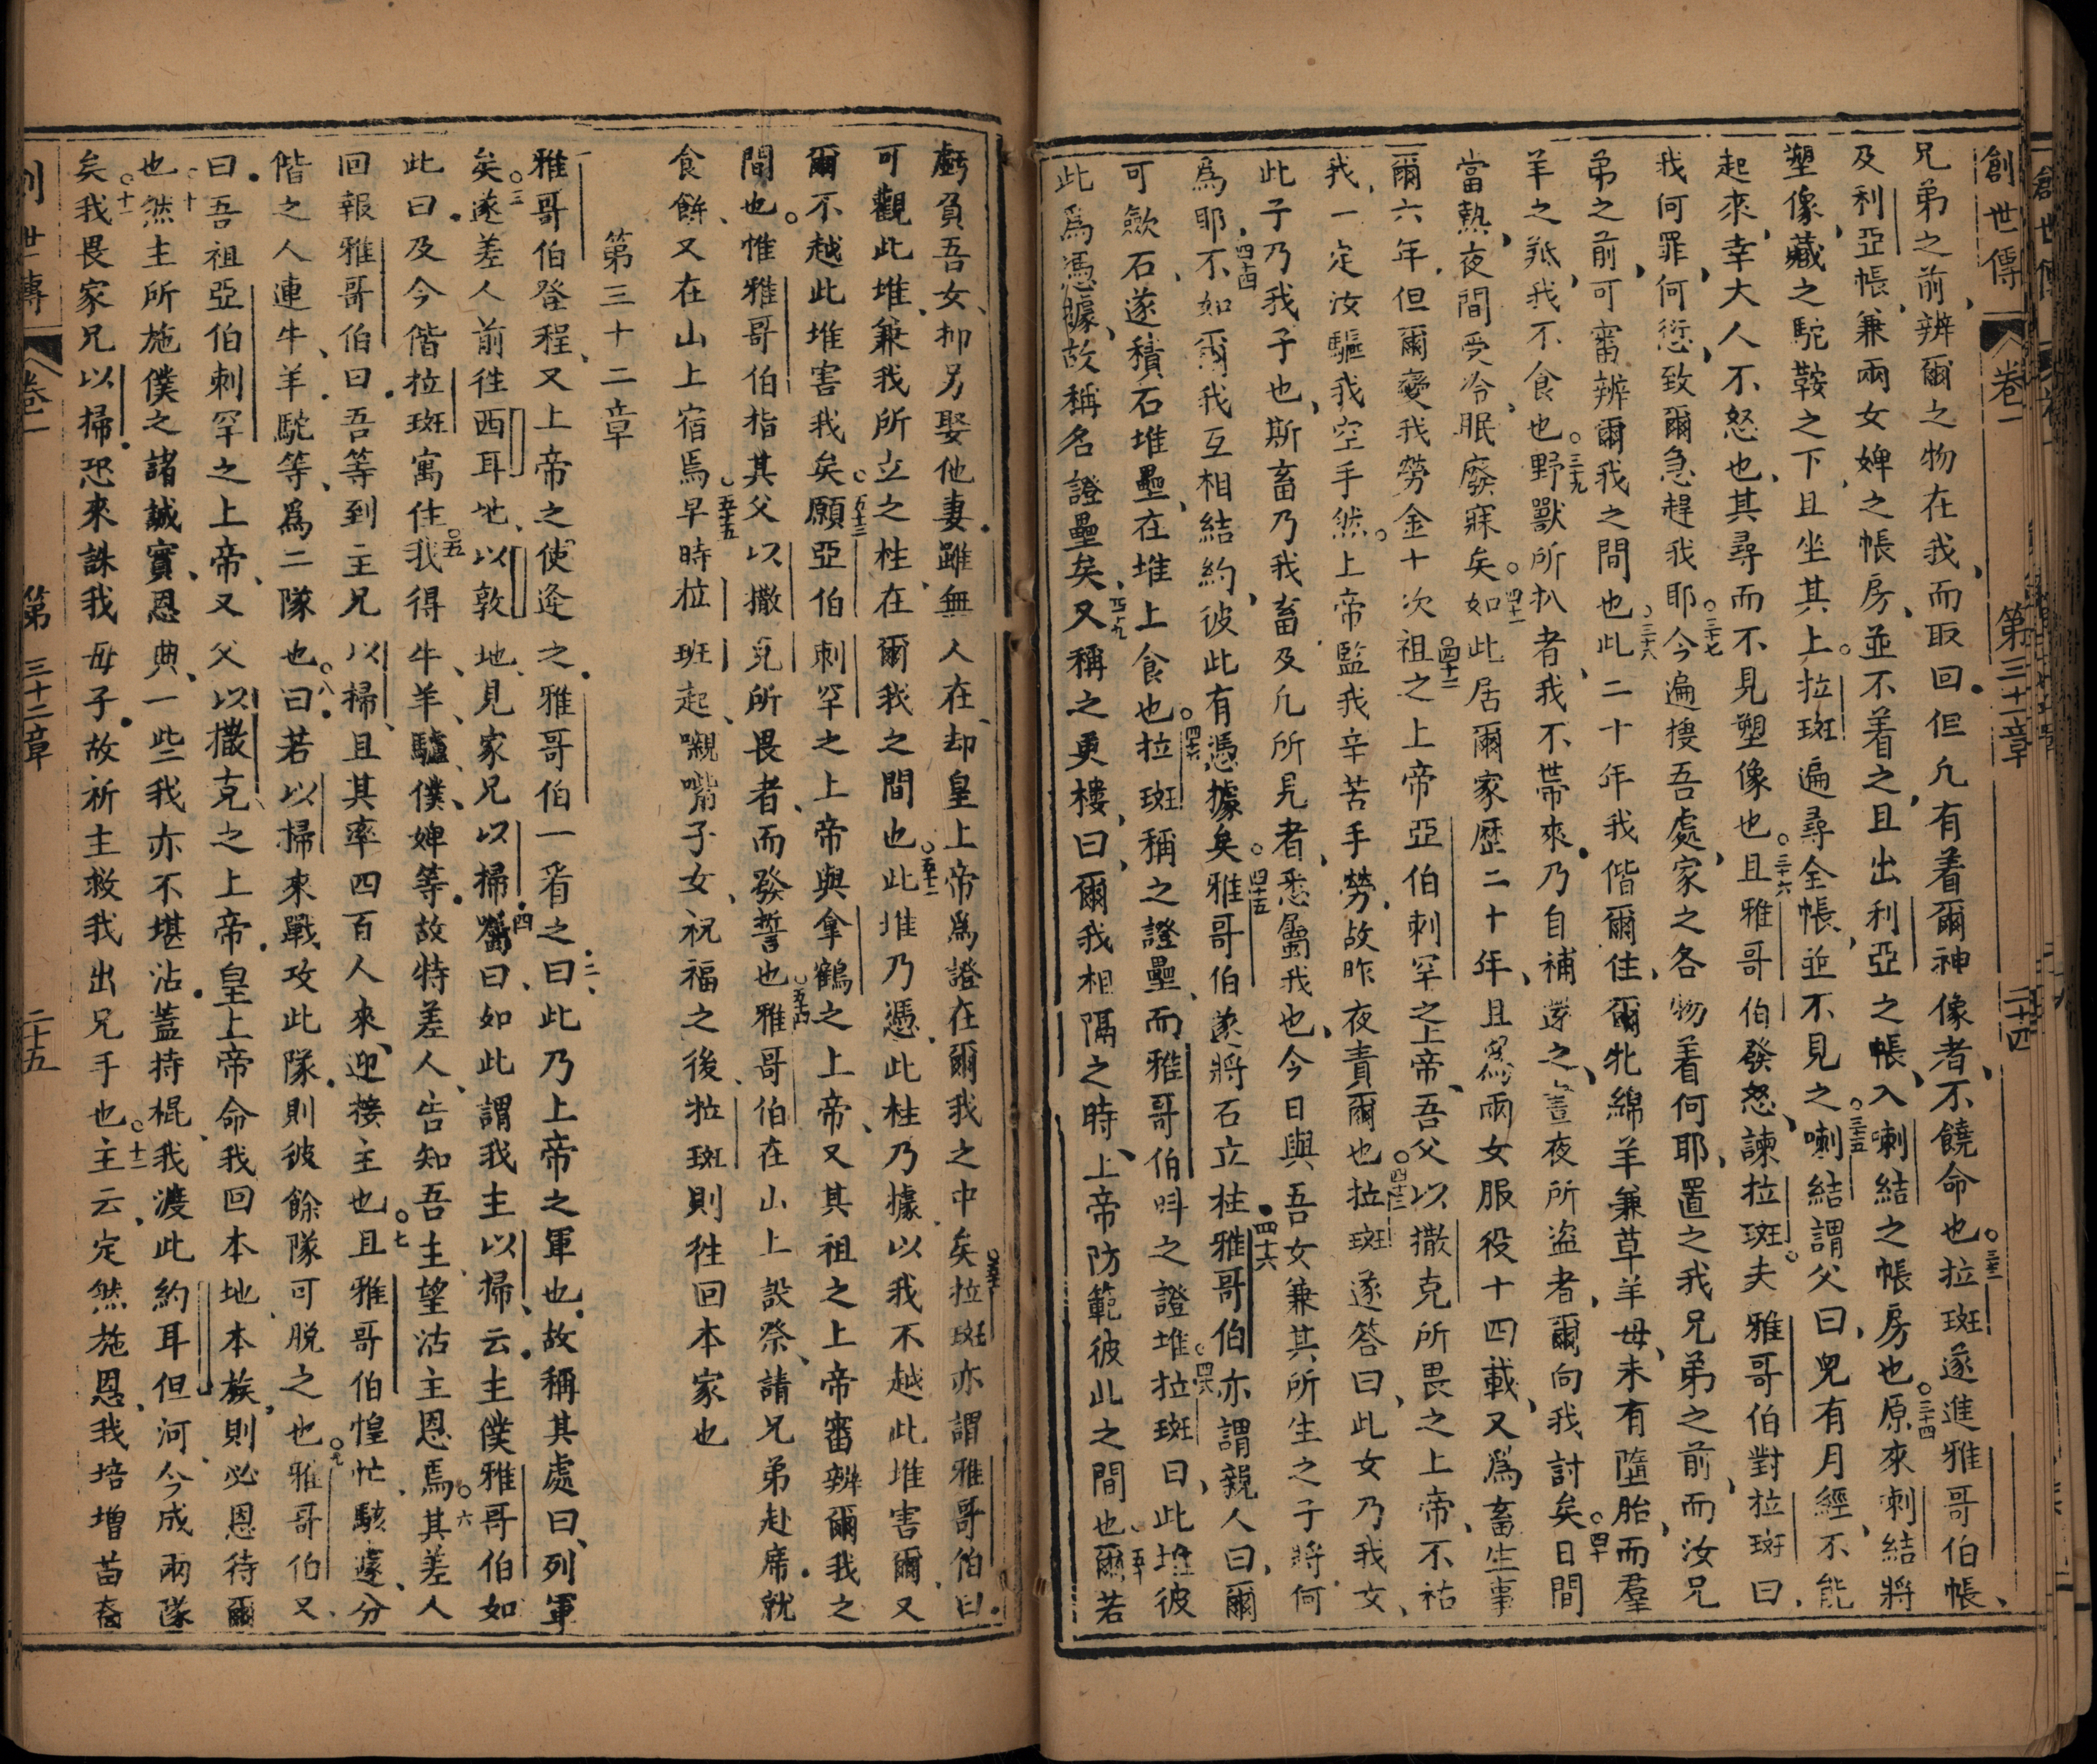 創世傳 卷一 第三十一章 二十四
兄弟之前、辨爾之物在我、而取回、但凡有着爾神像者、不饒命也。三十三拉斑遂進雅哥伯帳、
及利亞帳、兼兩女婢之帳房、並不着之、且出利亞之帳、入喇結之帳房也。三十四原來喇結將
塑像、藏之駝鞍之下、且坐其上。拉斑遍尋全帳、並不見之。三十五喇結謂父曰、兒有月經、不能
起來、幸大人不怒也、其尋而不見塑像也。三十六且雅哥伯發怒、諫拉斑。夫雅哥伯對拉斑曰、
我何罪、何愆、致爾急趕我耶。三十七今遍搜吾處、家之各物着何耶、置之我兄弟之前、而汝兄
弟之前、可審辨爾我之間也。三十八此二十年我偕爾住、爾牝綿羊兼草羊母、未有墮胎、而羣
羊之羝、我不食也。三十九野獸所扒者、我不帶來、乃自補還之、晝夜所盜者、爾向我討矣。四十日間
當熱、夜間受冷、眠廢寐矣。四十一如此居爾家歷二十年、且爲兩女服役十四載、又爲畜生事
爾六年、但爾變我勞金十次。四十二祖之上帝、亞伯剌罕之上帝、吾父以撒克所畏之上帝、不祜
我、一定汝驅我空手然。上帝監我辛苦手勞、故昨夜責爾也。四十三拉斑遂答曰、此女乃我女、
此子乃我子也、斯畜乃我畜、及凡所見者、悉屬我也、今日與吾女兼其所生之子將何
爲耶、四十四不如爾我互相結約、彼此有憑據矣。四十五雅哥伯遂將石立柱。四十六雅哥伯亦謂親人曰、爾
可斂石、遂積石堆壘、在堆上食也。四十七拉斑稱之證壘、而雅哥伯呌之證堆。四十八拉斑曰、此堆彼
此爲憑據、故稱名證壘矣、四十九又稱之更樓、曰、爾我相隔之時、上帝防範彼此之間也。五十爾若
虧負吾女、抑另娶他妻、雖無人在、却皇上帝爲證在爾我之中矣。五十一拉斑亦謂雅哥伯曰、
可觀此堆、兼我所立之柱、在爾我之間也。五十二此堆乃憑、此柱乃據、以我不越此堆害爾、又
爾不越此堆害我矣。五十三願亞伯剌罕之上帝與拿鶴之上帝、又其祖之上帝審辨爾我之
間也。惟雅哥伯指其父以撒克所畏者、而發誓也。五十四雅哥伯在山上設祭、請兄弟赴席、就
食餅、又在山上宿焉。五十五早時拉班起、嚫嘴子女、祝福之後、拉斑則徃回本家也
第三十二章
雅哥伯登程、又上帝之使逄之、雅哥伯一看之、二曰、此乃上帝之軍也、故稱其處曰、列軍
矣。三遂差人前徃西耳地、以敦地、見家兄以掃、四囑曰、如此謂我主以掃、云、主僕雅哥伯如
此曰、及今偕拉斑寓住。五我得牛、羊、驢、僕、婢等、故特差人、告知吾主、望沾主恩焉。六其差人
回報雅哥伯曰、吾等到主兄以掃、且其率四百人來、迎接主也。七且雅哥伯惶忙、駭遽、分
偕之人連牛、羊、駝等、爲二隊也。八曰、若以掃來戰攻此隊、則彼餘隊可脱之也。九雅哥伯又
曰、吾祖亞伯剌罕之上帝、又父以撒克之上帝、皇上帝命我回本地、本族、則必恩待爾
也。十然主所施僕之諸誠實、恩典、一些我亦不堪沾、蓋持棍、我渡此約耳但河、今成兩隊
矣。十一我畏家兄以掃、恐來誅我毋子、故祈主救我出兄手也。十二主云、定然施恩、我培增苗裔
創世傳 卷一 第三十二章 二十五